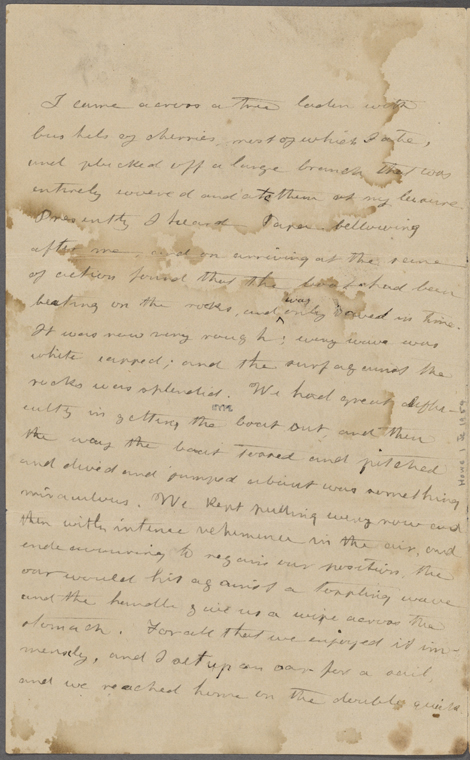 I came across a tree laden with
bushels of cherries, most of which I ate,
and plucked off a large branch that was
entirely covered and ate them at my leisure.
Presently I heard Papa bellowing
after me, and on arriving at the scene
of action found that the boat had been
beating on the rocks, and was only saved in time.
It was now very rough; every wave was
white capped; and the surf against the
rocks was splendid. We had great diffi-
culty in getting the boat out, and then
the way the boat tossed and pitched
and dived and jumped about was something
miraculous. We kept pulling every now and
then with intense vehemence in the air, and
endeavouring to regain our position, the
oar would hit against a toppling wave
and the handle give us a wipe across the
stomach. For all that we enjoyed it im-
mensely, and I set up an oar for a sail,
and we reached home on the double quick